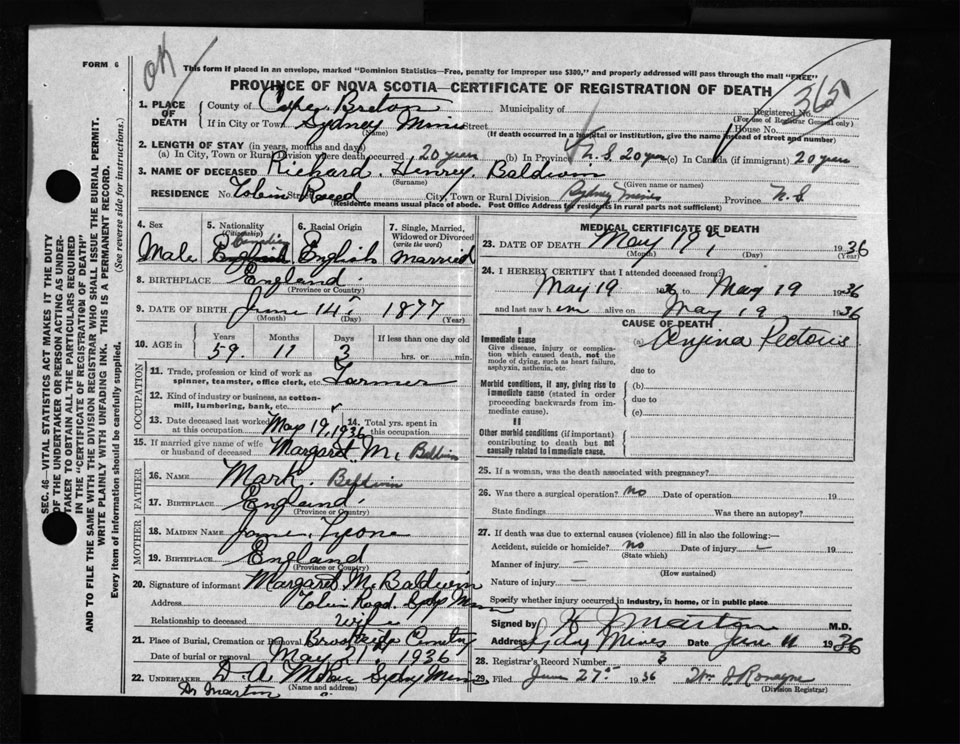 OK
FORM 6
This form if placed in an envelope, marked "Dominion Statistics—Free, penalty for improper use $300," and properly addressed will pass through the mail "FREE"
PROVINCE OF NOVA SCOTIA—CERTIFICATE OF REGISTRATION OF DEATH
3651
1. PLACE OF DEATH County of Cape Breton Municipality of Registered No.
(For use of Registrar General only)
If in City or Town Sydney Mines Street House No.
(Name) (If death occurred in a hospital or institution, give the name instead of street and number)
2. LENGTH OF STAY (in years, months and days)
(a) In City, Town or Rural Division where death occurred 20 years (b) In Province N.S. 20 years (c) In Canada (if immigrant) 20 years
3. NAME OF DECEASED Richard Henrey Baldwin
(Surname) (Given name or names)
RESIDENCE No. Tobin Road Street City, Town or Rural Division Sydney Mines Province N.S
(Residence means usual place of abode. Post Office Address for residents in rural parts not sufficient)
4. Sex 5. Nationality (Citizenship) 6. Racial Origin 7. Single, Married, Widowed or Divorced (write the word)
Male English English Married
8. BIRTHPLACE England
(Province or Country)
9. DATE OF BIRTH June 14 1877
(Month) (Day) (Year)
10. AGE in Years Months Days If less than one day old
59 11 3 hrs. or min.
OCCUPATION
11. Trade, profession or kind of work as spinner, teamster, office clerk, etc. Farmer
12. Kind of industry or business, as cotton-mill, lumbering, bank, etc.
13. Date deceased last worked at this occupation May 19, 1936 14. Total yrs. spent in this occupation
15. If married give name of wife or husband of deceased Margaret M. Baldwin
FATHER
16. NAME Mark Baldwin
17. BIRTHPLACE England
(Province or Country)
MOTHER
18. MAIDEN NAME Jane
19. BIRTHPLACE England
(Province or Country)
20. Signature of informant Margaret M. Baldwin
Address Tobin Road Syd Mines
Relationship to deceased Wife
21. Place of Burial, Cremation or Removal Brookside Cemetry
Date of burial or removal May 21, 1936
22. UNDERTAKER D. A. McRae Sydney Mines
(Name and address)
Dr Marton
MEDICAL CERTIFICATE OF DEATH
23. DATE OF DEATH May 19, 1936
(Month) (Day) (Year)
24. I HEREBY CERTIFY that I attended deceased from:
May 19 1936 to May 19 1936
and last saw him alive on May 19 1936
CAUSE OF DEATH
I
Immediate cause (a) Angina Pectoris
Give disease, injury or complication which caused death, not the mode of dying, such as heart failure, asphyxia, asthenia, etc.
due to
Morbid conditions, if any, giving rise to immediate cause (stated in order proceeding backwards from immediate cause).
(b)
due to
(c)
II
Other morbid conditions (if important) contributing to death but not causally related to immediate cause.
25. If a woman, was the death associated with pregnancy?
26. Was there a surgical operation? no Date of operation 19
State findings Was there an autopsy?
27. If death was due to external causes (violence) fill in also the following:—
Accident, suicide or homicide? no Date of injury — 19
(State which)
Manner of injury —
(How sustained)
Nature of injury —
Specify whether injury occurred in industry, in home, or in public place
Signed by Marton M.D.
Address Sydney Mines Date June 11 1936
28. Registrar's Record Number 3
29. Filed June 27 1936 Wm J. Ronayne
(Division Registrar)
SEC. 46—VITAL STATISTICS ACT MAKES IT THE DUTY OF THE UNDERTAKER OR PERSON ACTING AS UNDERTAKER TO OBTAIN ALL THE PARTICULARS REQUIRED IN THE "CERTIFICATE OF REGISTRATION OF DEATH" AND TO FILE THE SAME WITH THE DIVISION REGISTRAR WHO SHALL ISSUE THE BURIAL PERMIT.
WRITE PLAINLY WITH UNFADING INK. THIS IS A PERMANENT RECORD.
Every item of information should be carefully supplied. (See reverse side for instructions.)